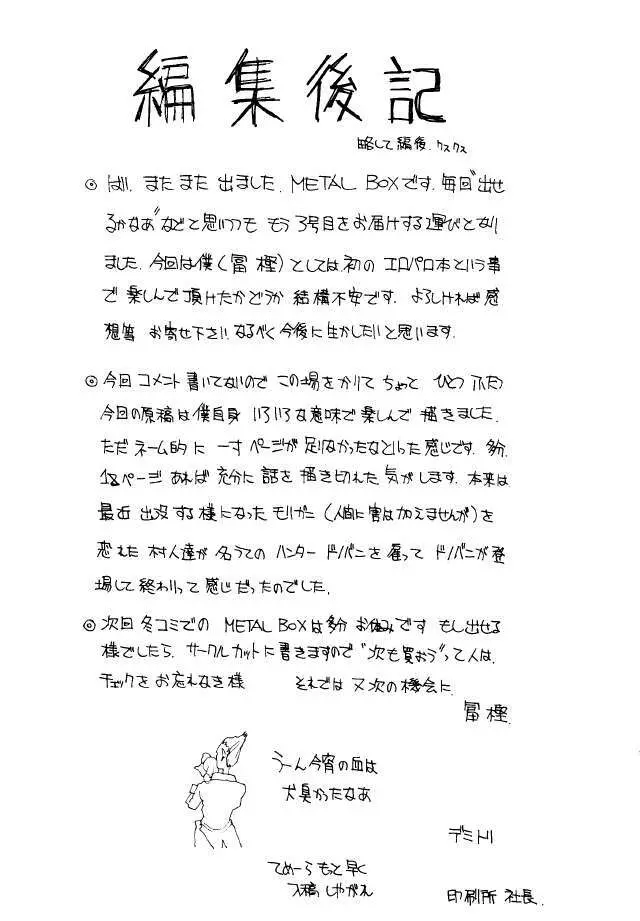 編集後記
略して編後.クスクス
◎ はい、またまた 出ました、METAL BOXです。毎回"出せ
るかなあ"などと思いつつも もう3号目をお届けする運びとなり
ました。今回は僕(冨樫)としては初の エロパロ本という事
で 楽しんで頂けたかどうか 結構不安です。よろしければ感
想等 お寄せ下さい。なるべく今後に生かしたいと思います。
◎今回 コメント書いてないので この場をかりて ちょっと ひとつふたつ
今回の原稿は僕自身 いろいろな意味で楽しんで 描きました。
ただネーム的に 一寸 ページが足りなかったなといった感じです。多分、
12ページ あれば 充分に 話を 描き切れた 気がします。本来は
最近 出没する様になった モリガン(人間に害は加えませんが)を
恐れた 村人達が 名うての ハンター ドノバンを 雇って ドノバンが登
場して 終わりって 感じだったのでした。
◎ 次回 冬コミでの METAL BOXは多分 お休みです もし出せる
様でしたら、サークルカットに書きますので"次も買おう"って人は、
チェックをお忘れなき様 それでは 又次の機会に
冨樫.
うーん今宵の血は
犬臭かったなあ
デミトリ
てめーら もっと早く
入稿しやがれ
印刷所 社長.